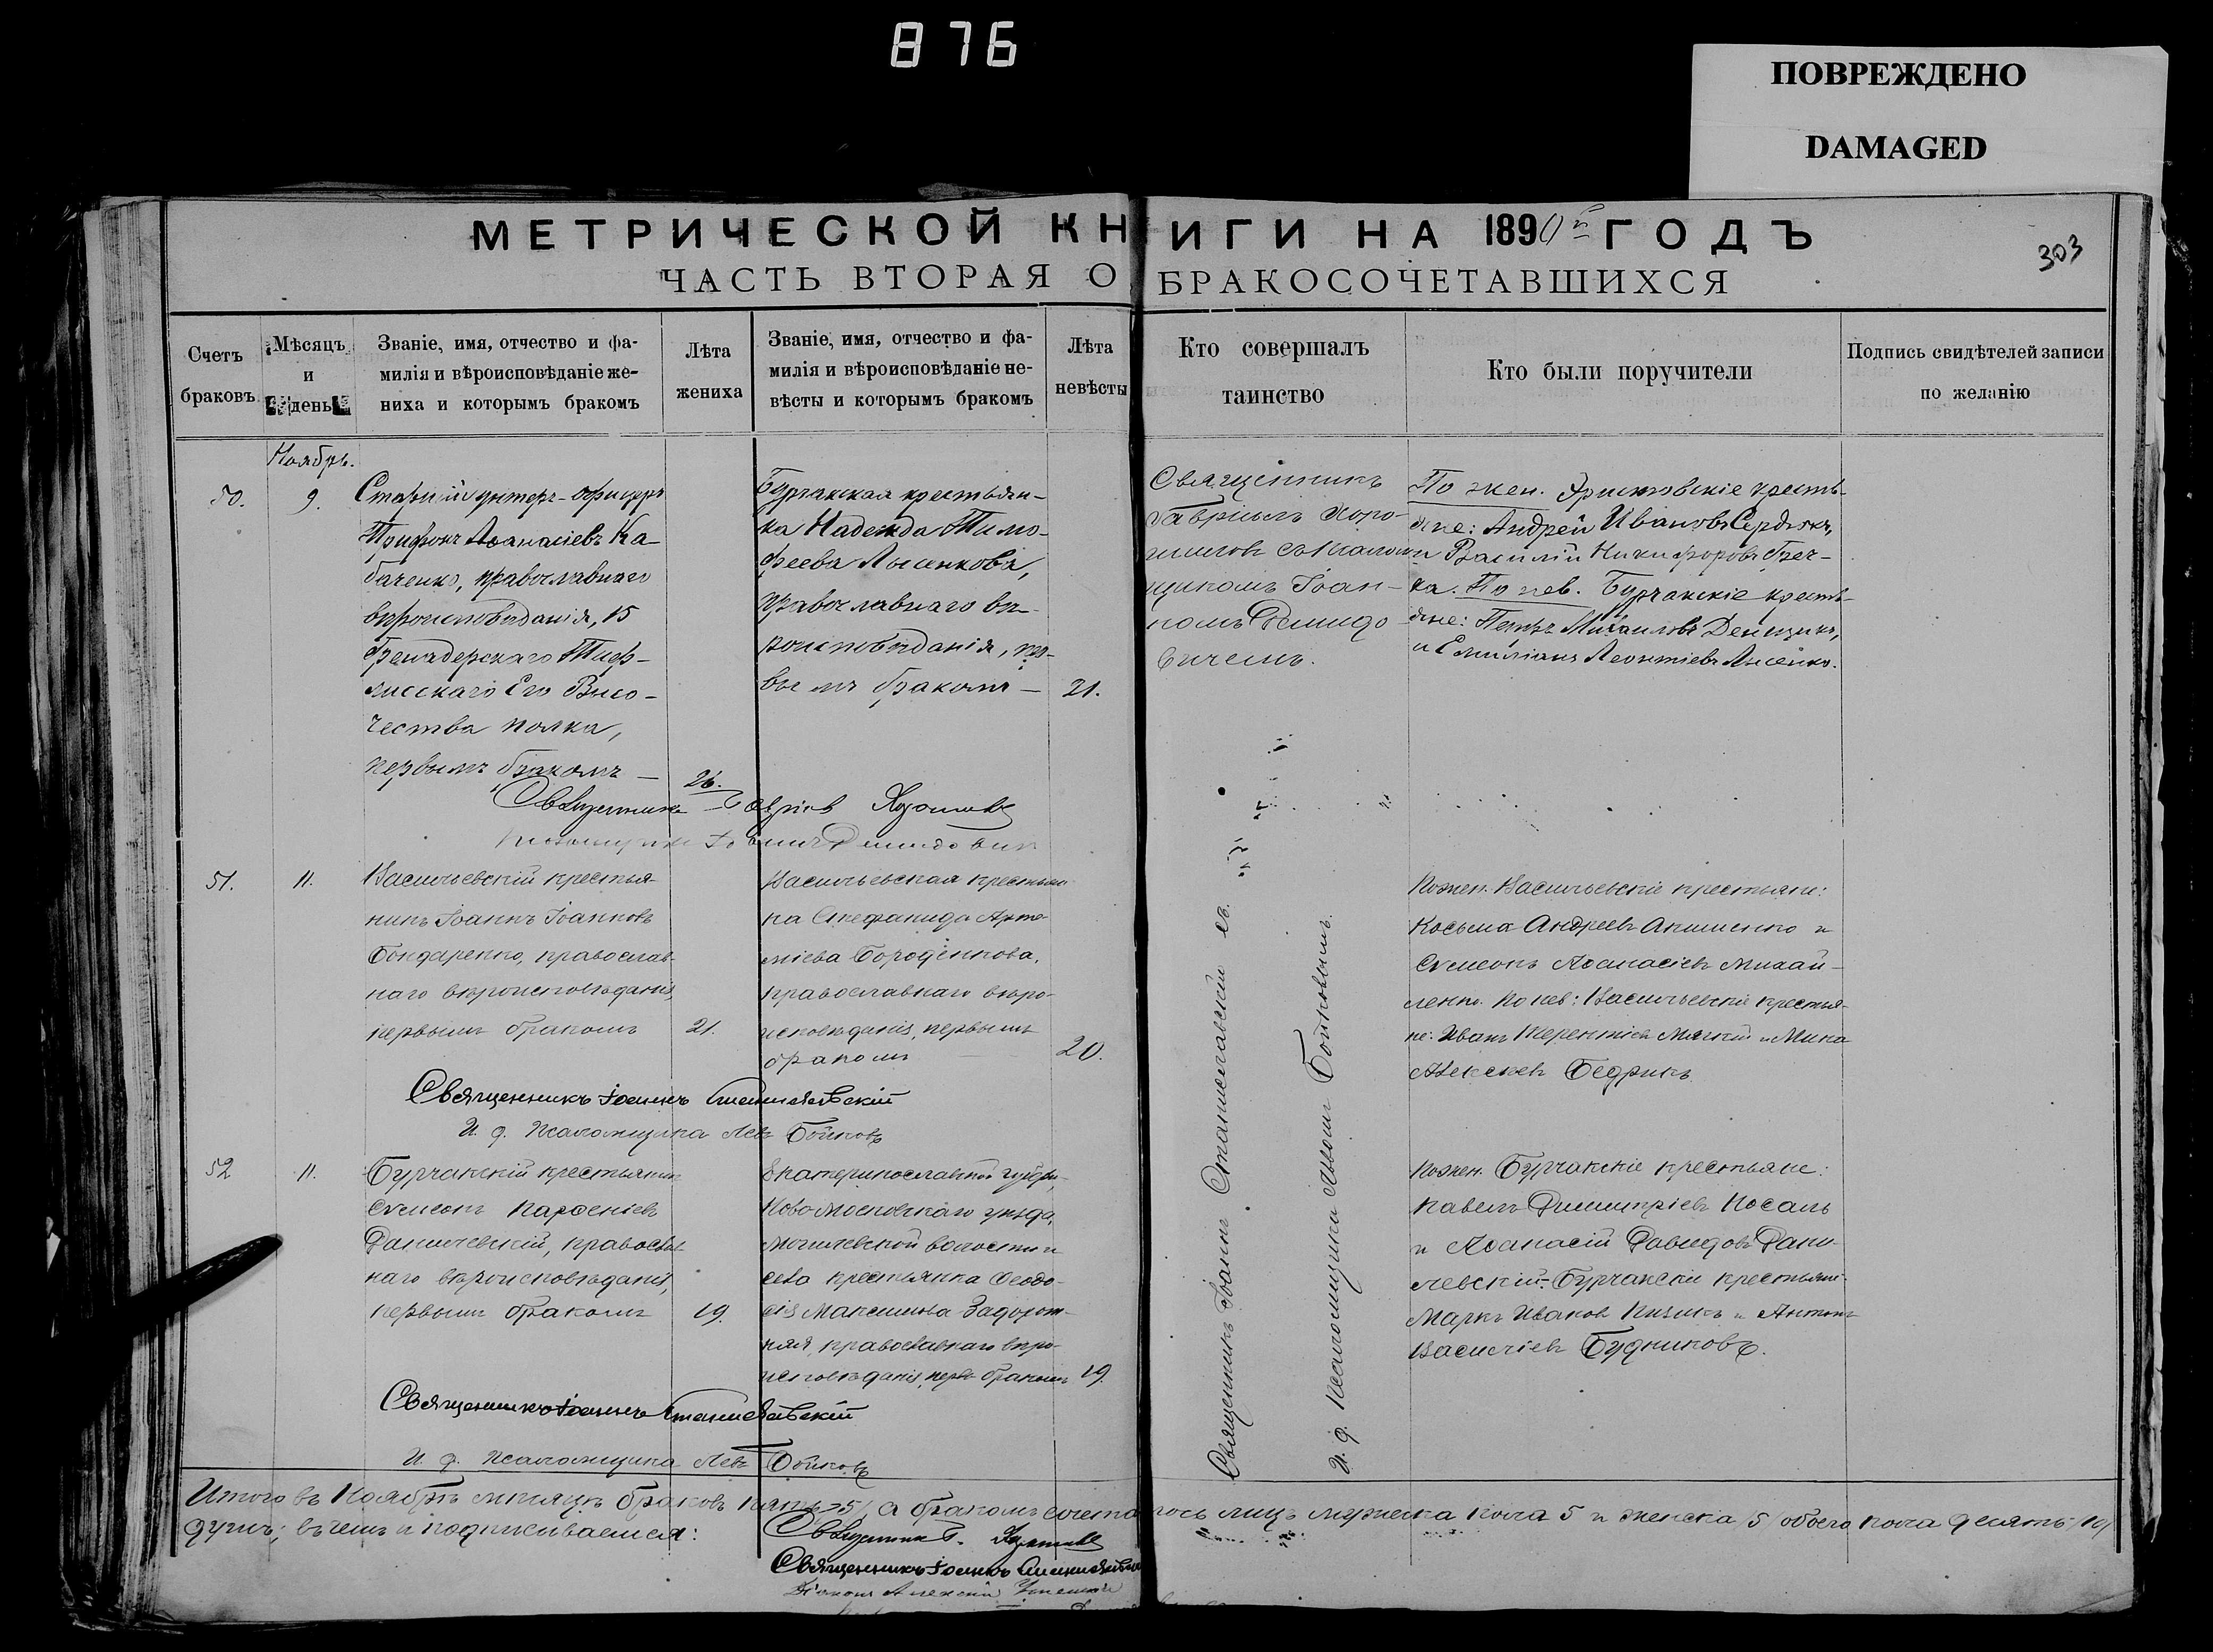 876
ПОВРЕЖДЕНО
DAMAGED
МЕТРИЧЕСКОЙ КНИГИ НА 1890й ГОДЪ
303
ЧАСТЬ ВТОРАЯ О БРАКОСОЧЕТАВШИХСЯ
Счетъ
браковъ.
Мѣсяцъ
и
день
Званіе, имя, отчество и фа-
милія и вѣроисповѣданіе же-
ниха и которымъ бракомъ
Лѣта
жениха
Званіе, имя, отчество и фа-
милія и вѣроисповѣданіе не-
вѣсты и которымъ бракомъ
Лѣта
невѣсты
Кто совершалъ
таинство
Кто были поручители
Подпись свидѣтелей записи
по желанію
Ноябрь.
50.
9.
Старшій унтеръ-офицеръ
Трифонъ Аѳанасіевъ Ка-
баченко, православнаго
вѣроисповѣданія, 15
Гренадерскаго Тиф-
лисскаго Его Высо-
чества полка,
первымъ бракомъ —
26.
Бурчакская крестьян-
ка Надежда Тимо-
феева Лысенкова,
православнаго вѣ-
роисповѣданія, пер-
вымъ бракомъ —
21.
Священникъ
Гавріилъ
съ Псалом-
щикомъ Іоан-
номъ Демидо-
вичемъ.
По жен. Эристовскіе кресть-
яне: Андрей Ивановъ Сердюкъ,
и Василій Никифоровъ Греч-
ка. По нев. Бурчакскіе кресть-
яне: Петръ Михаиловъ Денщикъ,
и Емиліанъ Леонтіевъ Лысенко.
Священникъ Гавріилъ
Псаломщикъ Іоаннъ Демидовичъ
51.
11.
Васильевскій крестья-
нинъ Іоаннъ Іоанновъ
Бондаренко, православ-
наго вѣроисповѣданія,
первымъ бракомъ
21.
Васильевская крестьян-
ка Стефанида Арте-
міева Бороденкова,
православнаго вѣро-
исповѣданія, первымъ
бракомъ
20.
По жен. Васильевскіе крестьяне:
Косьма Андреевъ Акименко и
Сѵмеонъ Аѳанасіевъ Михай-
ленко. По нев: Васильевскіе крестья-
не: Иванъ Терентіевъ Мягкій и Мина
Алексѣевъ Бедрикъ.
Священникъ Іоаннъ Станиславскій
И. д. Псаломщика Левъ Бойковъ
52
11.
Бурчакскій крестьянинъ
Сѵмеонъ Парѳеніевъ
Данилевскій, православ-
наго вѣроисповѣданія,
первымъ бракомъ
19.
Екатеринославской губерн.,
Новомосковскаго уѣзда,
волости и
села крестьянка Ѳеодо-
сія Максимова Задорож-
няя, православнаго вѣро-
исповѣданія, перв. бракомъ
19.
По жен. Бурчакскіе крестьяне:
Павелъ Димитріевъ Косаль
и Аѳанасій Давидовъ Дани-
левскій. Бурчакскіе крестьяне:
Маркъ Ивановъ и Антонъ
Василіевъ Будниковъ.
Священникъ Іоаннъ Станиславскій
И. д. Псаломщика Левъ Бойковъ
Священникъ Іоаннъ Станиславскій съ
И. д. Псаломщика Львомъ Бойковымъ.
Итого въ Ноябрѣ мѣсяцѣ браковъ пять /5/ а бракомъ сочеталось лицъ мужеска пола 5 и женска /5/ обоего пола десять /10/
душъ; въ чемъ и подписываемся:
Священникъ Г.
Священникъ Іоаннъ Станиславскій
Діаконъ Алексій